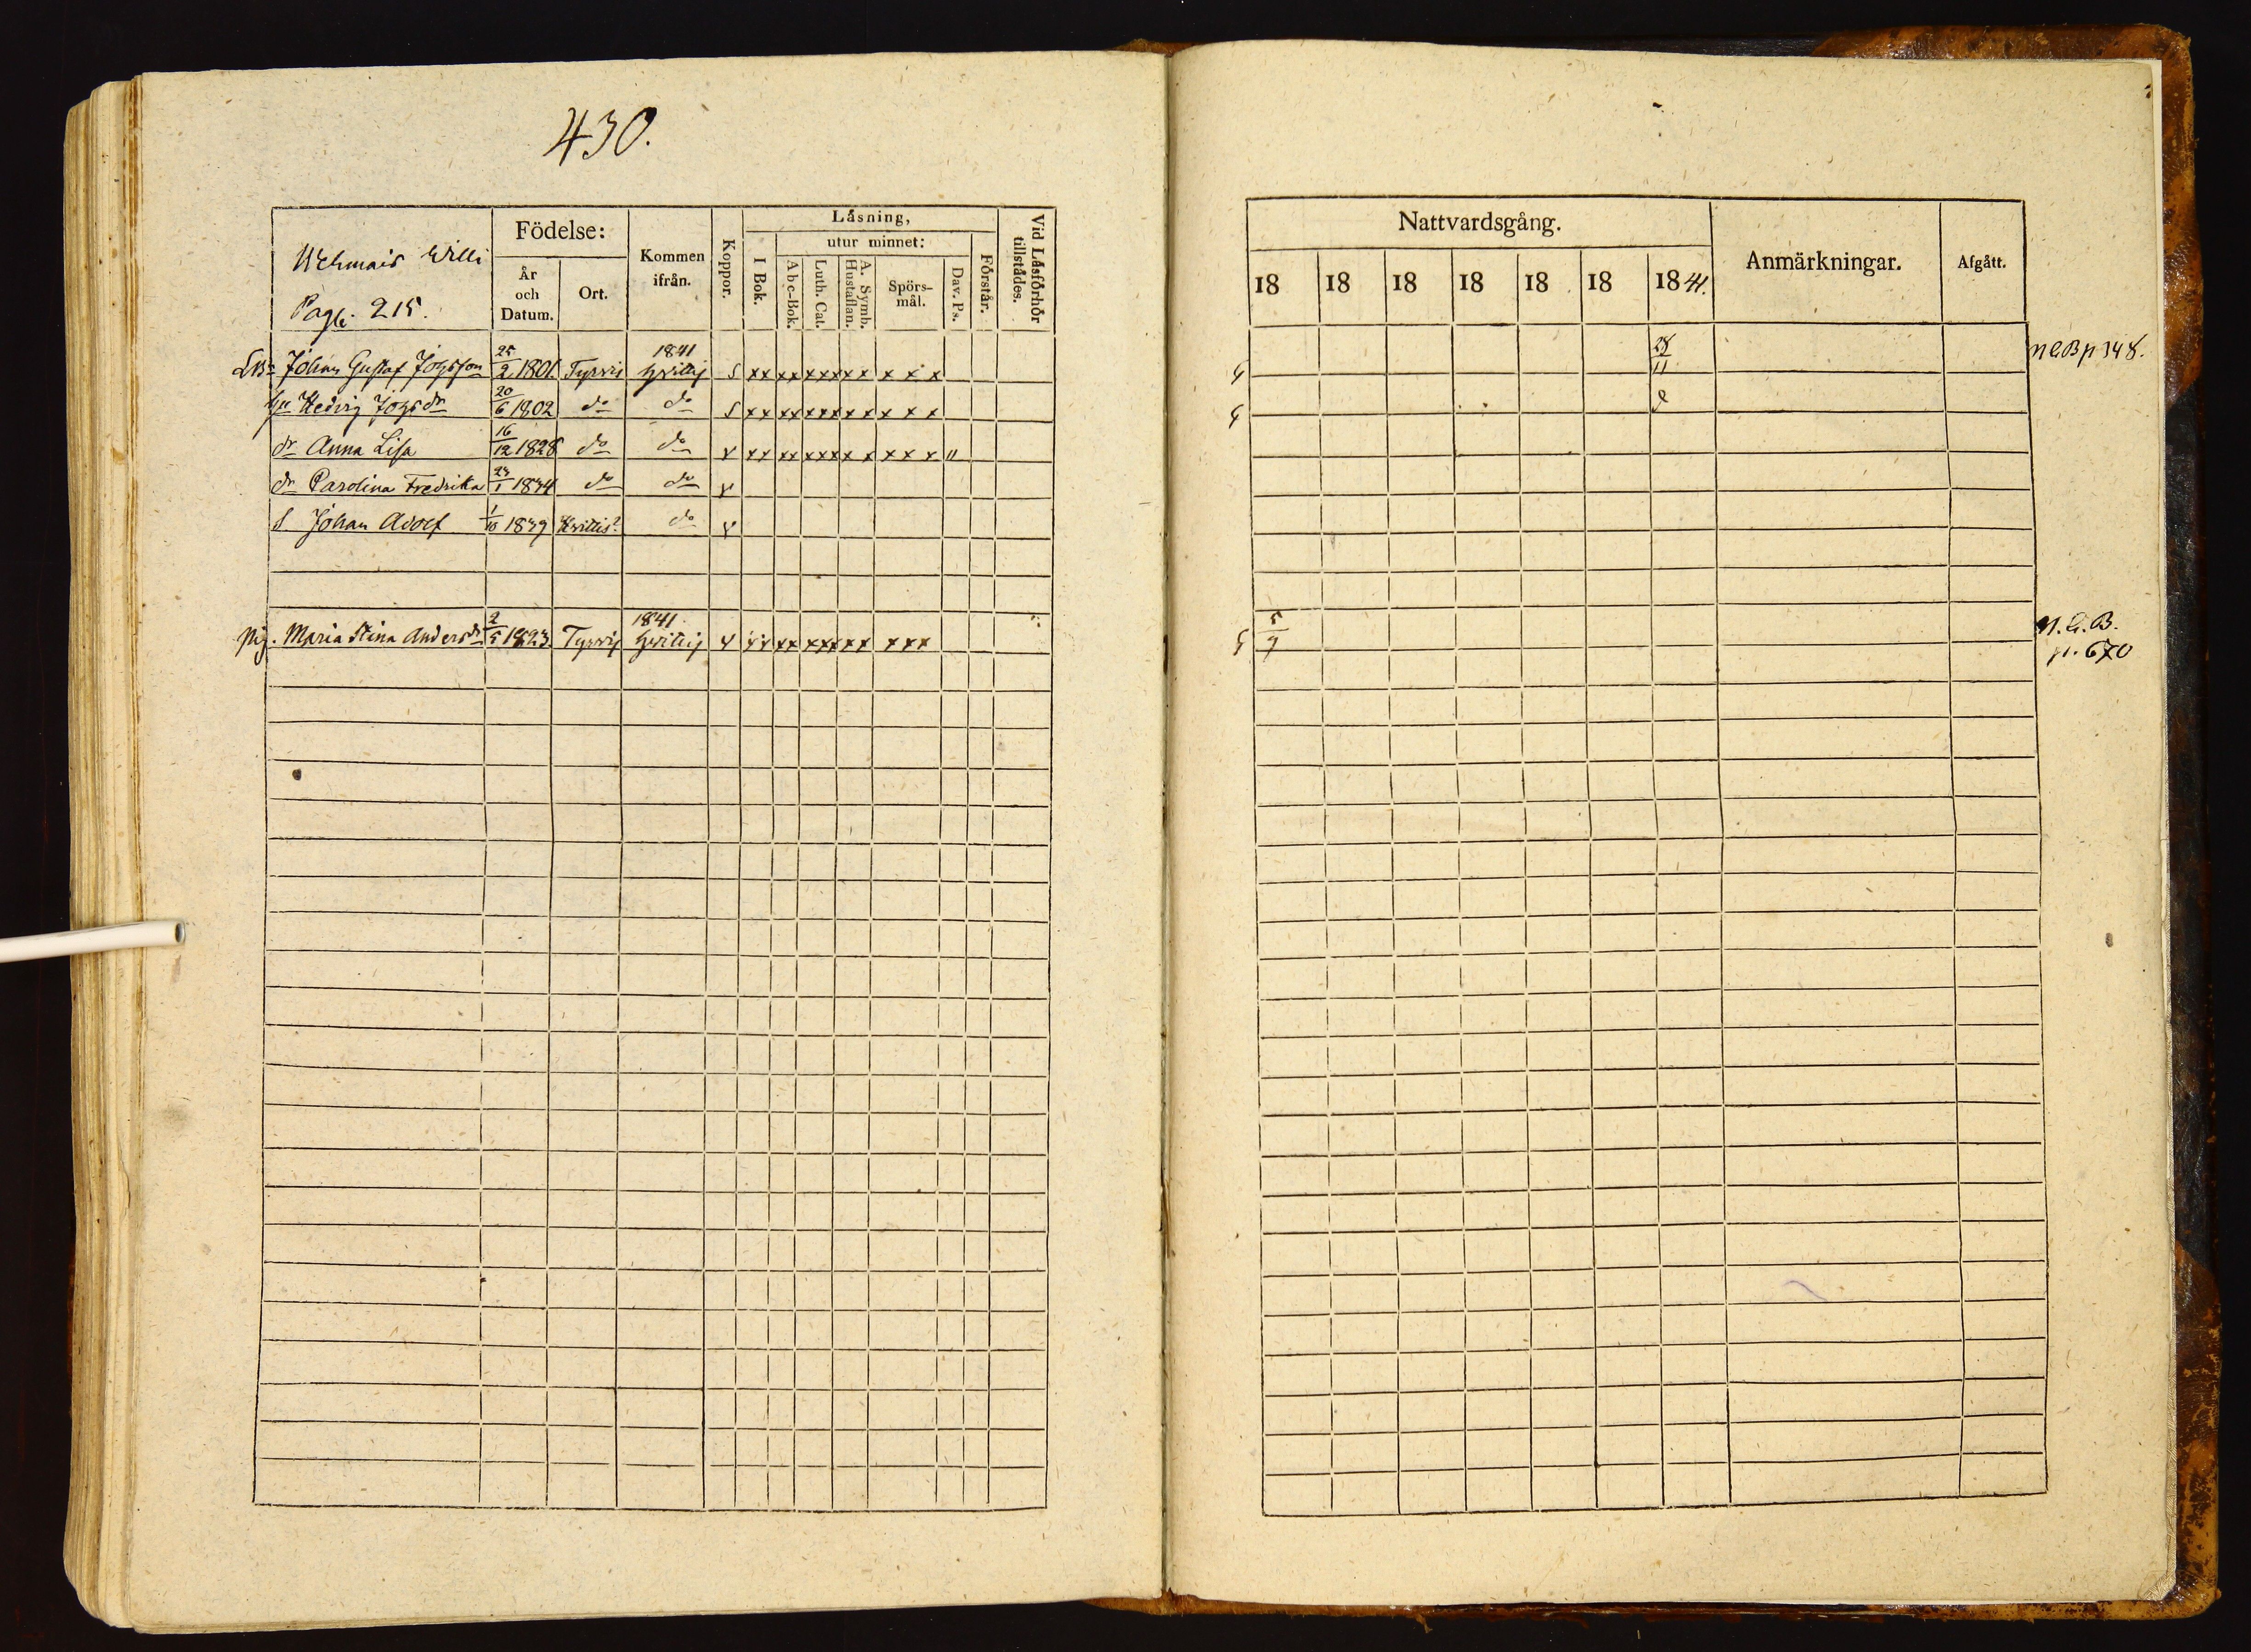 430.
Wehmais Willi
Pag. 215.
Födelse:
År och Datum.
Ort.
Kommen ifrån.
Koppor.
Låsning,
I Bok.
utur minnet:
Abc-Bok.
Luth. Cat.
A. Symb. Hustaflan.
Spörs-mål.
Dav. Ps.
Förstår.
Vid Låsförhör tillstådes.
Johan Gustaf 25/2 1801 Tyrvis 1841 S x x x x x x x x x x x x
Hedvig 20/6 1802 do do S x x x x x x x x x x x x
dr Anna Lisa 16/12 1828 do do v x x x x x x x x x x x x "
dr Carolina Fredrika 1834 do do v
S Johan Adolf 1/10 1839 do v
Pig. Maria Stina Andersdr 2/5 1823 Tyrvis 1841 v v v x x x x x x x x x x
Nattvardsgång.
18 18 18 18 18 18 1841.
Anmärkningar.
Afgått.
N.C.B. p. 348.
5/9
N.C.B.
p. 670